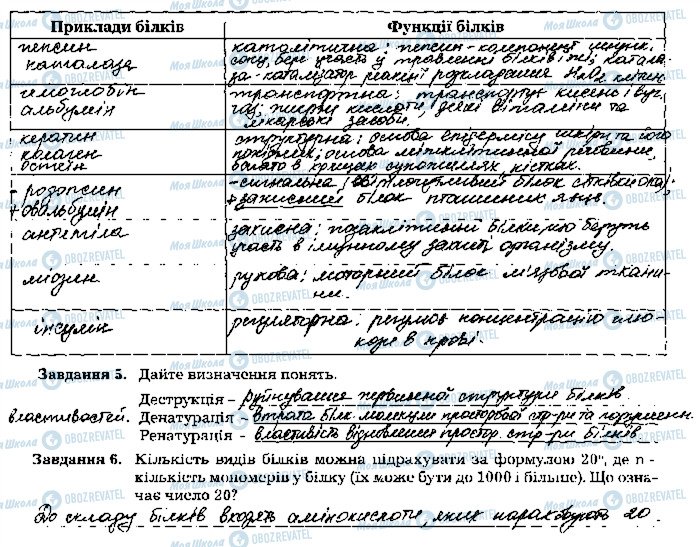 Приклади білків Функції білків
пепсин каталітична: пепсин - компонент шлунк.
каталаза соку, бере участь у травленні білків їжі; катала-
за - каталізатор реакції розкладання H₂O₂ клітин.
гемоглобін транспортна: транспортує кисень і вуг.
альбумін газ; жирну кислоти, деякі вітаміни та
лікарські засоби.
кератин структурна: основа епідермісу шкіри та його
колаген похідних; основа міжклітинної речовини,
остеїн багато в хрящах, сухожиллях, кістках.
- родопсин - сигнальна (світлочутливий білок сітківки ока);
+ овальбумін + захисний білок пташиних яєць.
антитіла захисна: позаклітинні білки, що беруть
участь в імунному захисті організму.
міозин рухова: моторний білок м'язової ткани-
ни.
інсулін регуляторна: регулює концентрацію глю-
кози в крові.
Завдання 5. Дайте визначення понять.
Деструкція - руйнування первинної структури білків.
властивостей. Денатурація - втрата білк. молекули просторової стр-ри та порушення
Ренатурація - властивість відновлення простор. стр-ри білків.
Завдання 6. Кількість видів білків можна підрахувати за формулою 20ⁿ, де n -
кількість мономерів у білку (їх може бути до 1000 і більше). Що озна-
чає число 20?
До складу білків входять амінокислоти, яких нараховують 20.